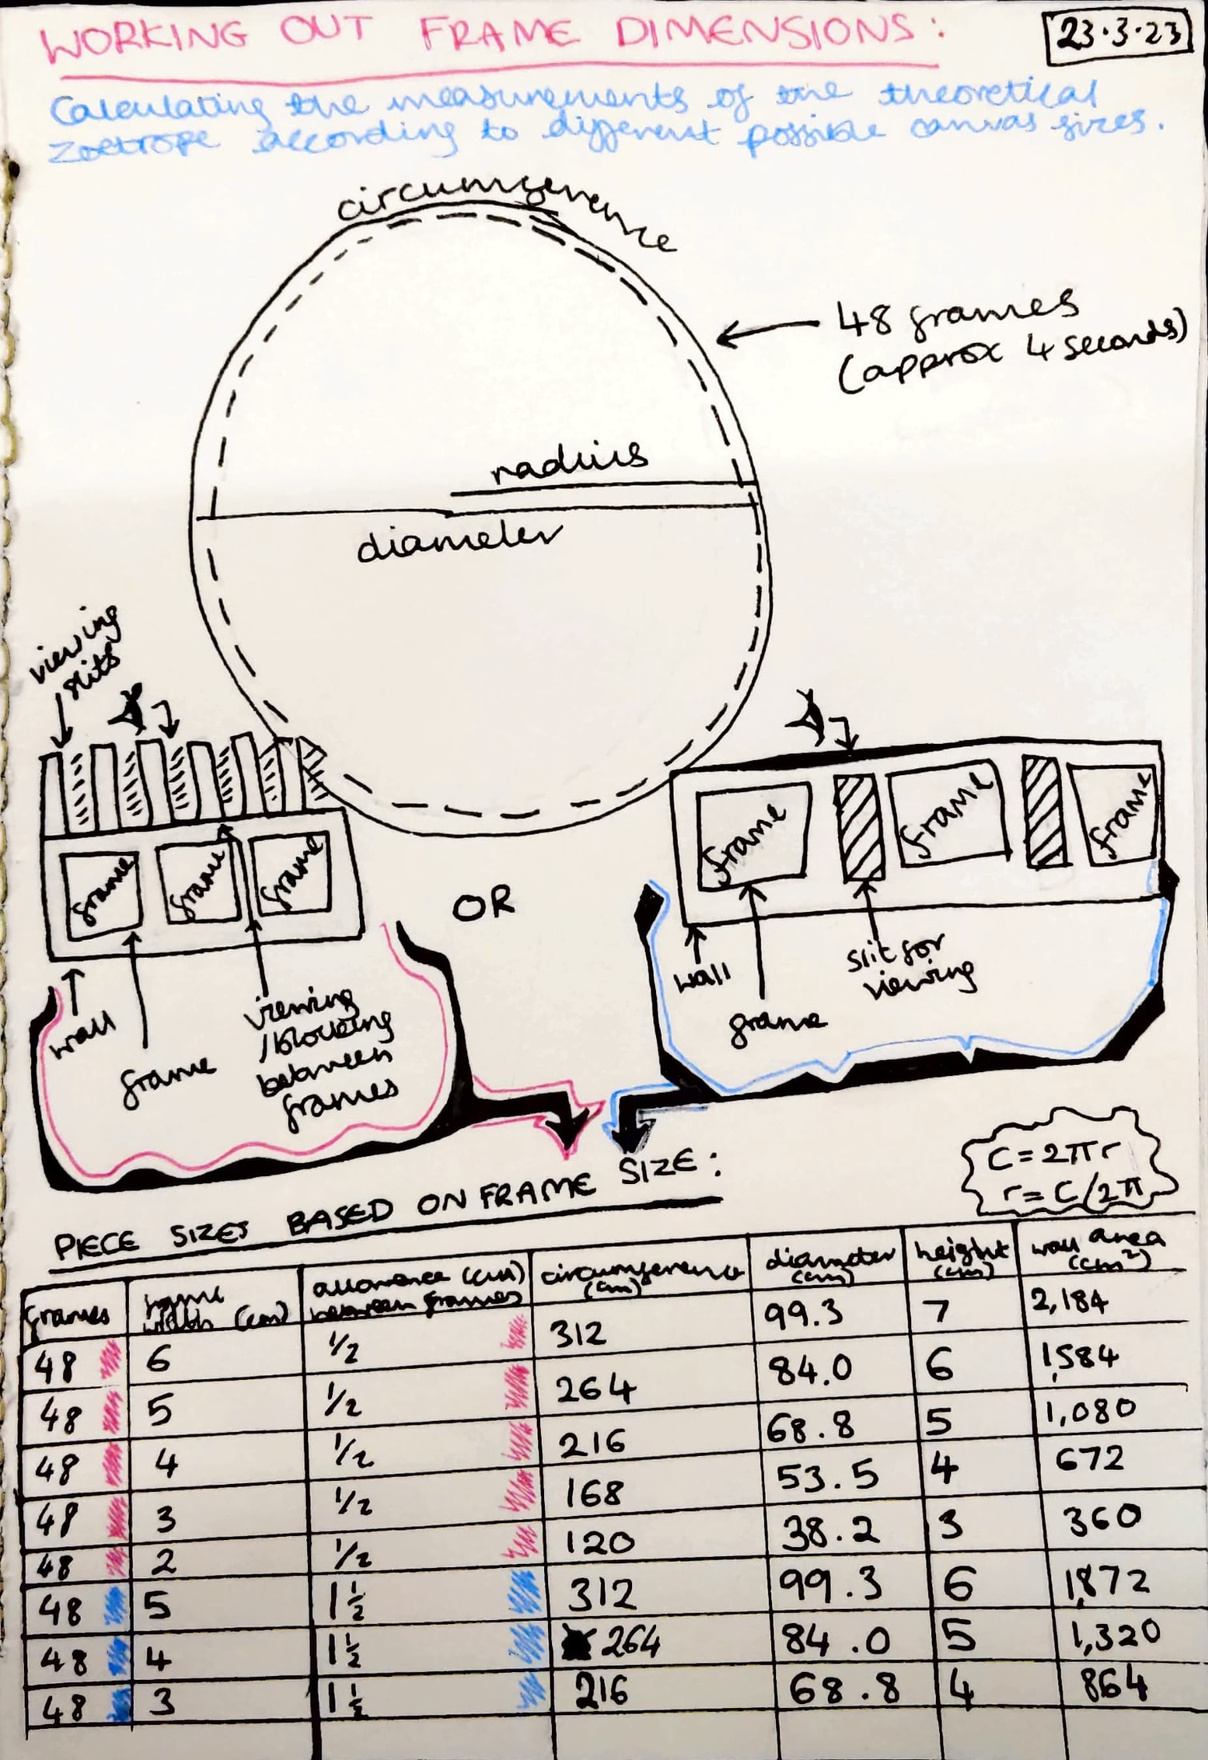 WORKING OUT FRAME DIMENSIONS:
23.3.23
Calculating the measurements of the theoretical
zoetrope according to different possible canvas sizes.
circumference
48 frames
(approx 4 seconds)
radius
diameter
viewing
slits
frame
frame
frame
wall
frame
viewing
/blocking
between
frames
OR
frame
frame
frame
wall
frame
slit for
viewing
C=2πr
r=C/2π
PIECE SIZES BASED ON FRAME SIZE:
frames frame width (cm) allowance (cm) between frames circumference (cm) diameter (cm) height (cm) wall area (cm²)
48 6 1/2 312 99.3 7 2,184
48 5 1/2 264 84.0 6 1,584
48 4 1/2 216 68.8 5 1,080
48 3 1/2 168 53.5 4 672
48 2 1/2 120 38.2 3 360
48 5 1 1/2 312 99.3 6 1,872
48 4 1 1/2 264 84.0 5 1,320
48 3 1 1/2 216 68.8 4 864